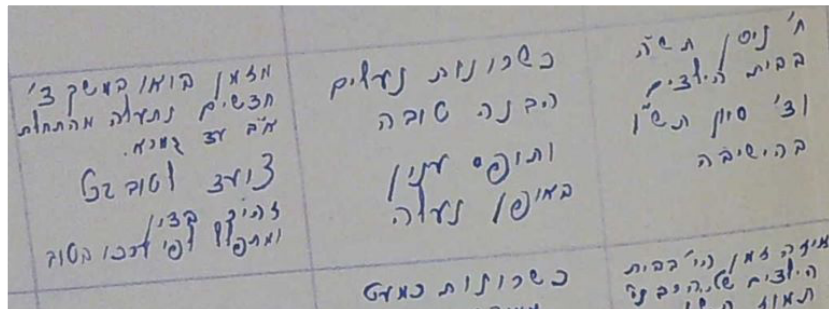 ח' ניסן תש"ה
בבית הילדים
וצ' סיון תש"ו
בהישיבה
כשרונות נעלים
הבנה טובה
ותופס ענין
באופן נעלה
מזמן בואו במשך צ'
חדשים נתעלה מהתחלת
א"ב עד גמרא.
צועד לטוב בכל
זהיר בדין
ומתפלל לפי ערכו בטוב
איזה זמן היי' בבית
הילדים של הרבני
תמוז
כשרונות כמעט